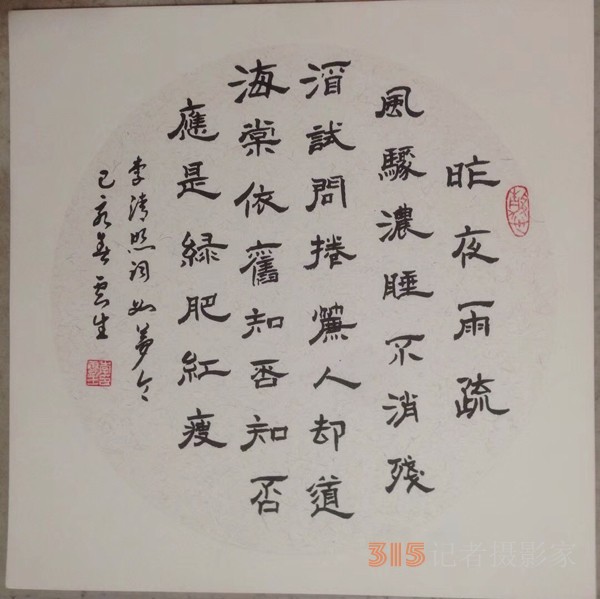 昨夜雨疏
風驟濃睡不消殘
酒試問捲簾人却道
海棠依舊知否知否
應是緑肥紅瘦
李清照词如夢令
己亥春雲生
315记者摄影家